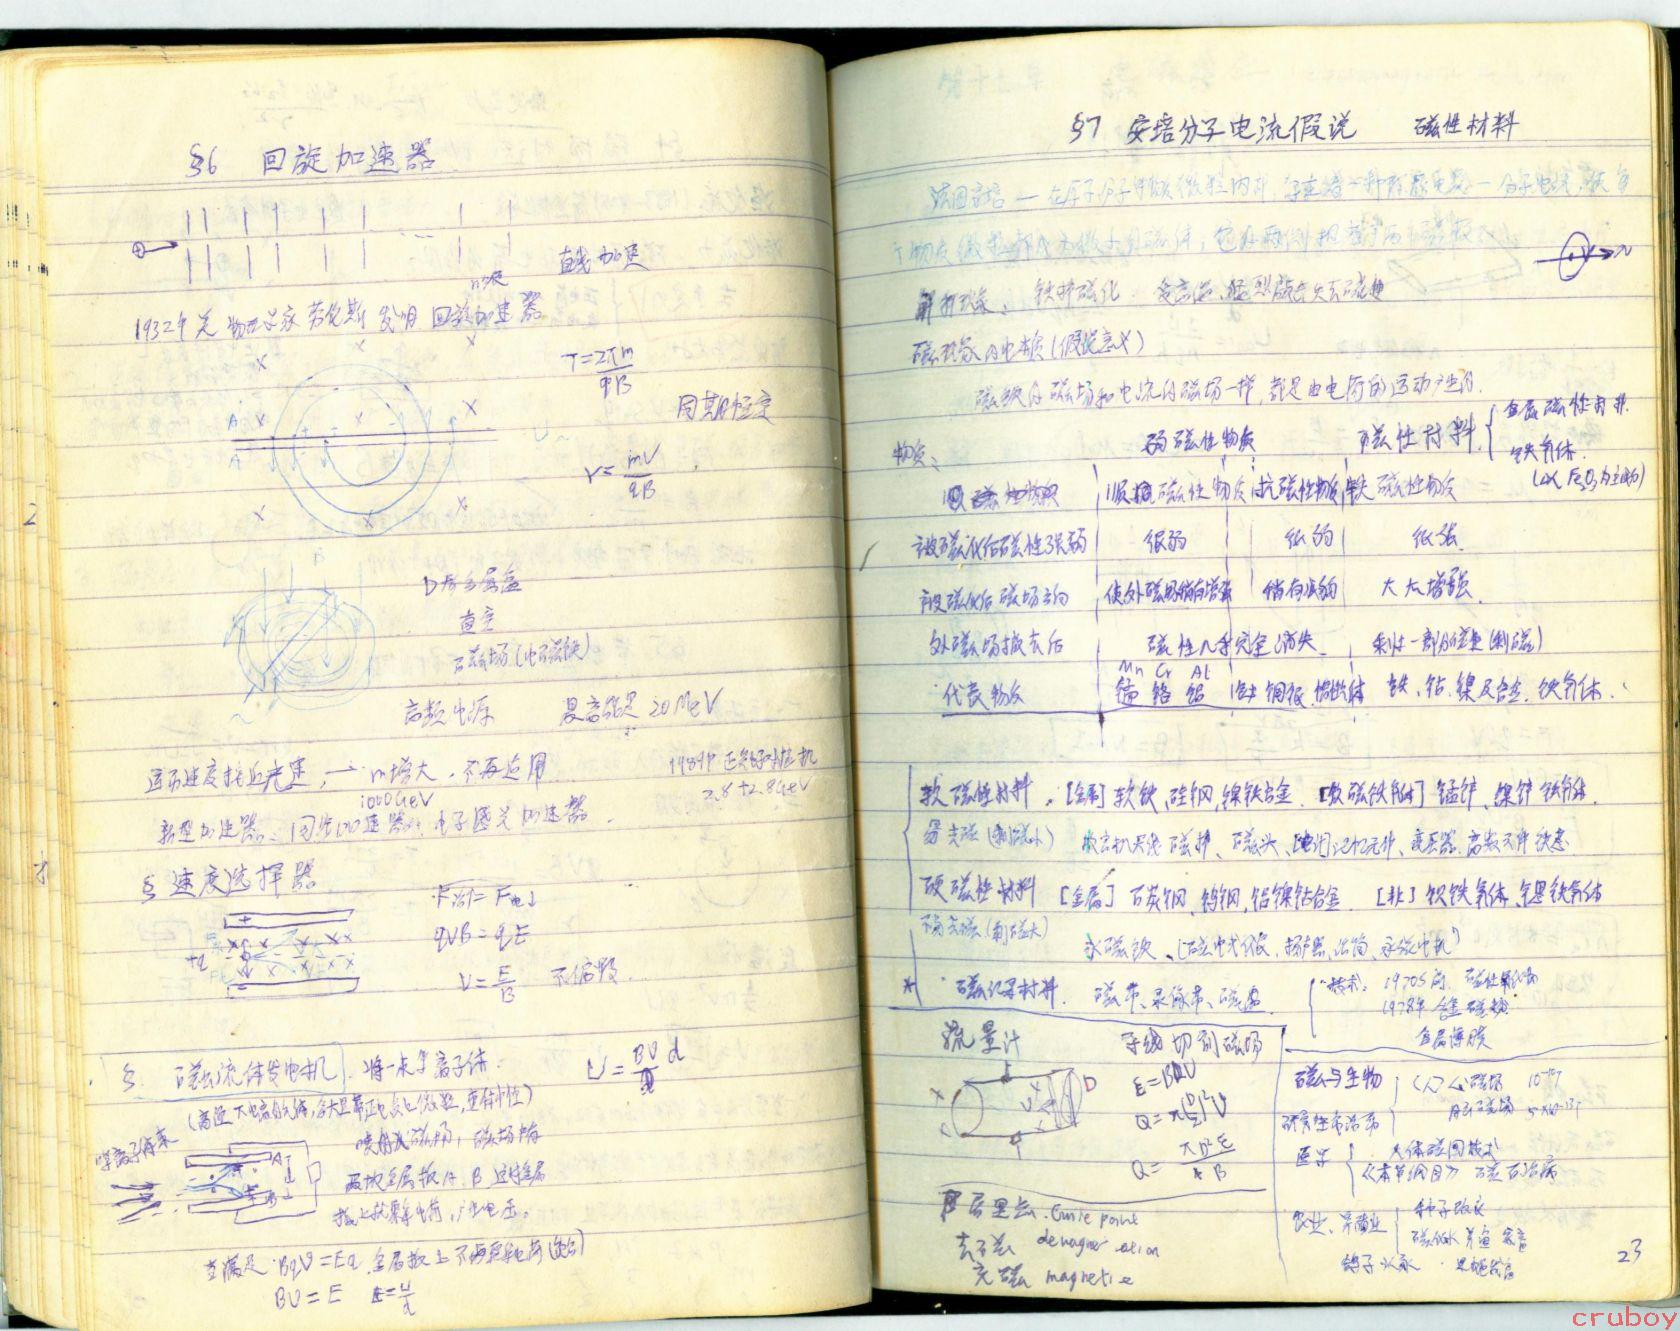 §6 回旋加速器
直线加速
n级
1932年 美 物理学家 劳伦斯 发明 回旋加速器
T=2πm/qB
周期恒定
A
A'
r=mV/qB
D形金属盒
真空
磁场(电磁铁)
高频电源 最高能量 20MeV
运动速度接近光速, → m增大, 不再适用
1989年 正负电子对撞机
1000GeV
2.8+2.8GeV
新型加速器: 同步加速器, 电子感应加速器.
§ 速度选择器
F洛=F电
qVB=qE
V=E/B 不偏转.
+q
§ 磁流体发电机. 将一束等离子体
U=BVd
(高温下电离的气体,含大量带正电负电微粒,整体中性)
喷射入磁场, 磁场中有
等离子体束
两块金属板A、B 这时金属
板上就聚集电荷,产生电压.
当满足 BqV=Eq 金属板上不再聚集电荷
BV=E E=U/d
§7 安培分子电流假说 磁性材料
法国安培 — 在原子分子等物质微粒内部, 存在着一种环形电流—分子电流, 使每
个物质微粒都成为微小的磁体, 它的两侧相当于两个磁极
解释现象: 铁棒磁化 受高温、猛烈敲击失去磁性
磁现象的电本质(假说意义)
磁铁的磁场和电流的磁场一样, 都是由电荷的运动产生的.
物质: 弱磁性物质 磁性材料 { 金属磁性材料.
铁氧体.
(以Fe₂O₃为主要成分)
顺磁性物质 抗磁性物质 铁磁性物质
被磁化后磁性强弱 很弱 很弱 很强
被磁化后磁场方向 使外磁场稍有增强 稍有减弱 大大增强
外磁场撤去后 磁性几乎完全消失 剩下一部分磁性(剩磁)
Mn Cr Al
代表物质 锰 铬 铝 铁、钴、镍及合金、铁氧体.
软磁性材料. [金属] 软铁、硅钢、镍铁合金. [软磁铁氧体] 锰锌、镍锌铁氧体.
易去磁(剩磁小) 收音机天线磁棒、磁头、[电计]记忆元件、变压器、高频元件铁芯
硬磁性材料 [金属] 石炭钢、钨钢、铝镍钴合金. [非] 钡铁氧体、锶铁氧体
不易去磁(剩磁大)
永磁铁、(磁电式仪表、扬声器、话筒、永磁电机)
* 磁记录材料. 磁带、录像带、磁盘
技术: 1970S前. 磁性氧化物
1978年 合金磁粉
金属薄膜
流量计 导线切割磁场
D
E=BDV
Q=π(D/2)²V
Q=πDE/4B
居里点. Curie point
去磁
充磁 magnetize
磁与生物 { (人)心磁场
研究生命活动
医学 { 人体磁图技术
《本草纲目》 磁石治病
农业、养殖业 { 种子改良
磁化水 养鱼 家畜
鸽子 认家
23
cruboy